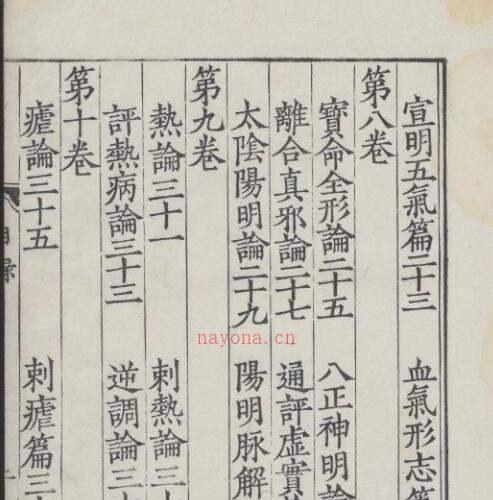 宣明五氣篇二十三 血氣形志篇
第八卷
寶命全形論二十五 八正神明論
離合真邪論二十七 通評虛實
太陰陽明論二十九 陽明脉解
第九卷
熱論三十一 刺熱論三十
評熱病論三十三 逆調論三十
第十卷
瘧論三十五 刺瘧篇三十
目錄
nayona.cn